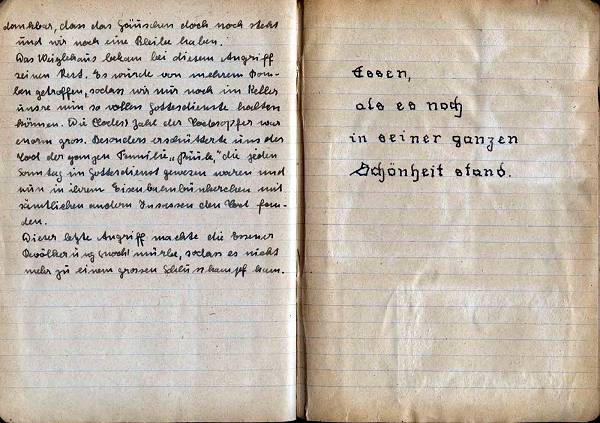 dankbar, dass das Häuschen doch noch steht
und wir noch eine Bleibe haben.
Das Weiglehaus bekam bei diesem Angriff
seinen Rest. Es wurde von mehrern Bom-
ben getroffen, sodass wir nur noch im Keller
unsre nun so vollen Gottesdienste halten
können. Die Zahl der Todesopfer war
enorm gross. Besonders erschütterte uns der
Tod der ganzen Familie „ " die jeden
Sonntag im Gottesdienst gewesen waren und
nun in ihrem Eisenbahnbünkerchen mit
sämtlichen andern Insassen den Tod fan-
den.
Dieser letzte Angriff machte die Essener
Bevölkerung mürbe, sodass es nicht
mehr zu einem grossen Schlusskampf kam.
Essen,
als es noch
in seiner ganzen
Schönheit stand.